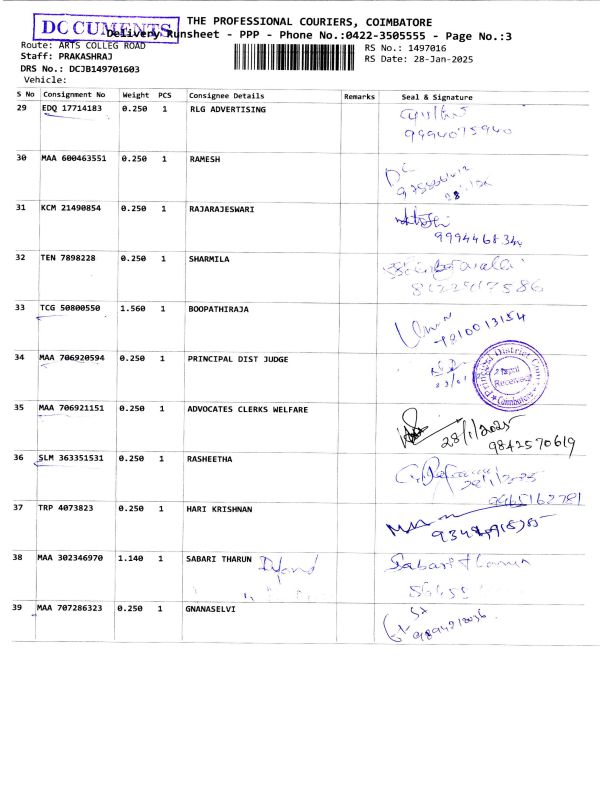 THE PROFESSIONAL COURIERS, COIMBATORE
DOCUMENTS
Delivery Runsheet - PPP - Phone No.:0422-3505555 - Page No.:3
Route: ARTS COLLEG ROAD
RS No.: 1497016
Staff: PRAKASHRAJ
RS Date: 28-Jan-2025
DRS No.: DCJB149701603
Vehicle:
S No Consignment No Weight PCS Consignee Details Remarks Seal & Signature
29 EDQ 17714183 0.250 1 RLG ADVERTISING
9994075940
30 MAA 600463551 0.250 1 RAMESH
31 KCM 21490854 0.250 1 RAJARAJESWARI
32 TEN 7898228 0.250 1 SHARMILA
33 TCG 50800550 1.560 1 BOOPATHIRAJA
9810013154
34 MAA 706920594 0.250 1 PRINCIPAL DIST JUDGE
Principal District Court
Received
Coimbatore
35 MAA 706921151 0.250 1 ADVOCATES CLERKS WELFARE
28/1/2025
9842570619
36 SLM 363351531 0.250 1 RASHEETHA
28/1/2025
9965162781
37 TRP 4073823 0.250 1 HARI KRISHNAN
38 MAA 302346970 1.140 1 SABARI THARUN
Sabari Tharun
39 MAA 707286323 0.250 1 GNANASELVI